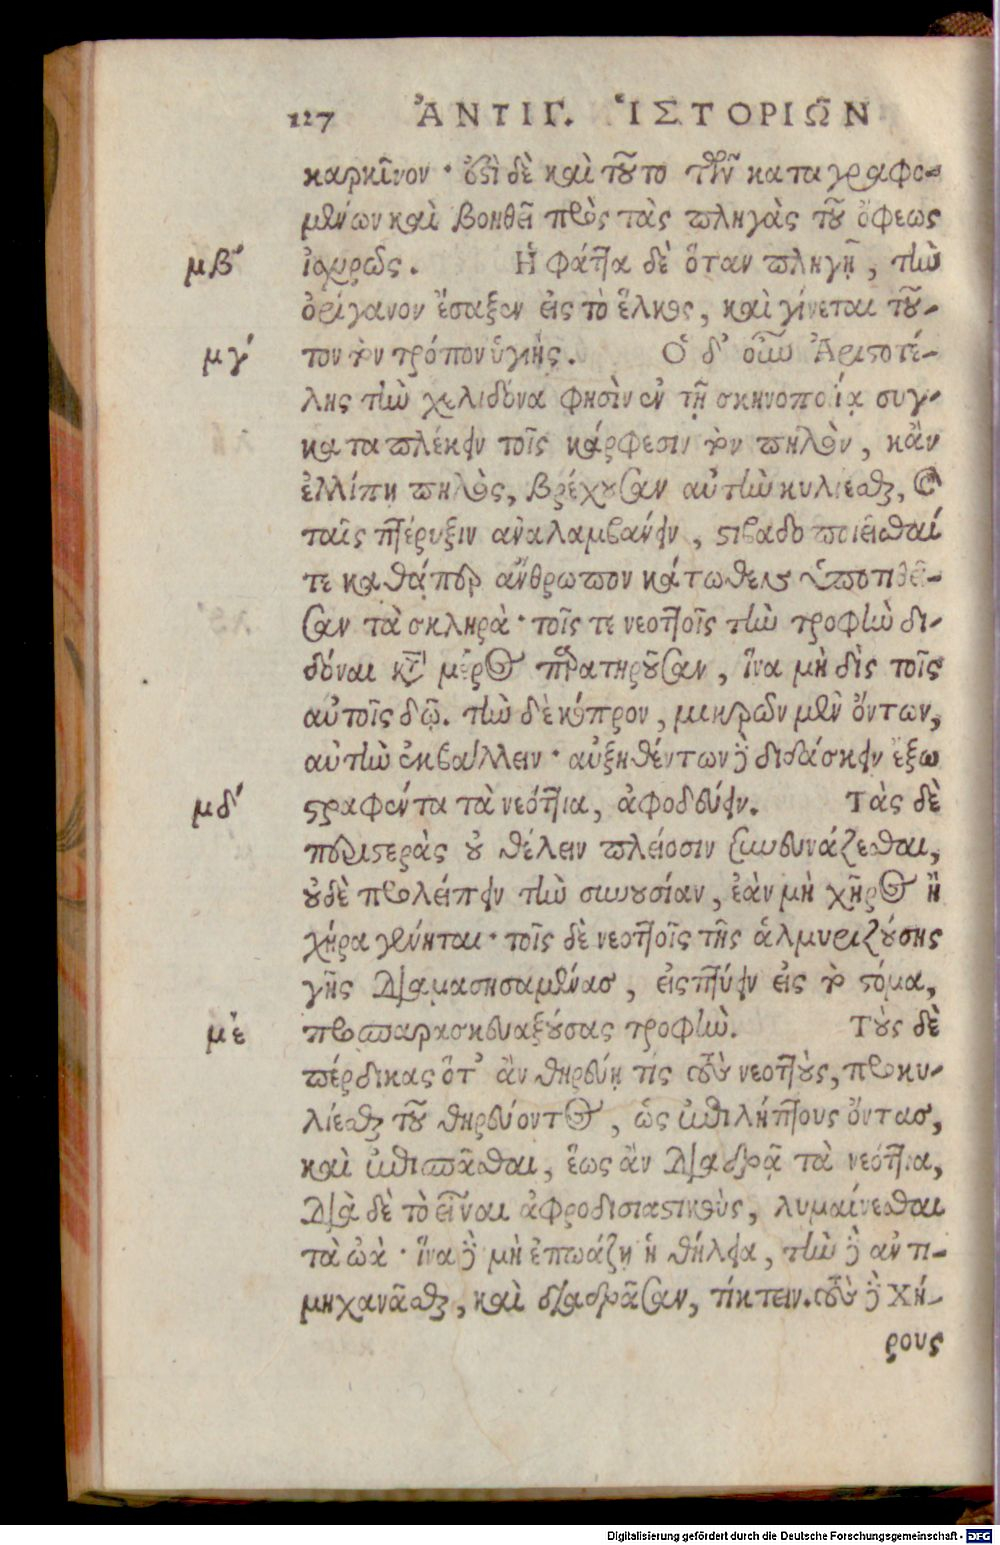 127 ἈΝΤΙΓ. ἹΣΤΟΡΙΩ͂Ν
καρκῖνον· ἔστι δὲ καὶ τοῦτο τῶν καταγραφο-
μένων καὶ βοηθεῖ πρὸς τὰς πληγὰς τοῦ ὄφεως
μβʹ ἰσχυρῶς. Ἡ φάτ]α δὲ ὅταν πληγῇ, τὴν
ὀρίγανον ἔσαξεν εἰς τὸ ἕλκος, καὶ γίνεται τοῦ-
μγʹ τον τὸν τρόπον ὑγιής. Ὁ δ' οὖν Ἀριστοτέ-
λης τὴν χελιδόνα φησὶν ἐν τῇ σκηνοποιίᾳ συγ-
καταπλέκειν τοῖς κάρφεσιν τὸν πηλὸν, κἂν
ἐλλίπῃ πηλὸς, βρέχουσαν αὑτὴν κυλίεσθαι, καὶ
ταῖς πτέρυξιν ἀναλαμβάνειν, στιβαδοποιεῖσθαί
τε καθάπερ ἄνθρωπον κάτωθεν ὑποτιθεῖ-
σαν τὰ σκληρὰ· τοῖς τε νεοττοῖς τὴν τροφὴν δι-
δόναι κατὰ μέρος παρατηροῦσαν, ἵνα μὴ δὶς τοῖς
αὐτοῖς δῷ. τὴν δὲ κόπρον, μικρῶν μὲν ὄντων,
αὐτὴν ἐκβάλλειν· αὐξηθέντων δὲ διδάσκειν ἔξω
μδʹ στραφέντα τὰ νεόττια, ἀφοδεύειν. Τὰς δὲ
περιστερὰς οὐ θέλειν πλείοσιν συνδυνάζεσθαι,
οὐδὲ προλείπειν τὴν συνουσίαν, ἐὰν μὴ χῆρος ἢ
χήρα γένηται· τοῖς δὲ νεοττοῖς τῆς ἁλμυριζούσης
γῆς διαμασησαμένας, εἰσπτύειν εἰς τὸ στόμα,
μεʹ προπαρασκευαξούσας τροφήν. Τοὺς δὲ
πέρδικας ὅτ' ἂν θηρεύῃ τίς τοὺς νεοττοὺς, προκυ-
λίεσθαι τοῦ θηρεύοντος, ὡς ἐπιλήπτους ὄντας,
καὶ ἐπισπᾶσθαι, ἕως ἂν διαδρᾷ τὰ νεόττια,
διὰ δὲ τὸ εἶναι ἀφροδισιαστικοὺς, λυμαίνεσθαι
τὰ ὠὰ· ἵνα δὲ μὴ ἐπωάζῃ ἡ θήλεια, τὴν δὲ ἀντι-
μηχανᾶσθαι, καὶ διαδρᾶσαν, τίκτειν. τοὺς δὲ χή-
ρους
Digitalisierung gefördert durch die Deutsche Forschungsgemeinschaft - DFG